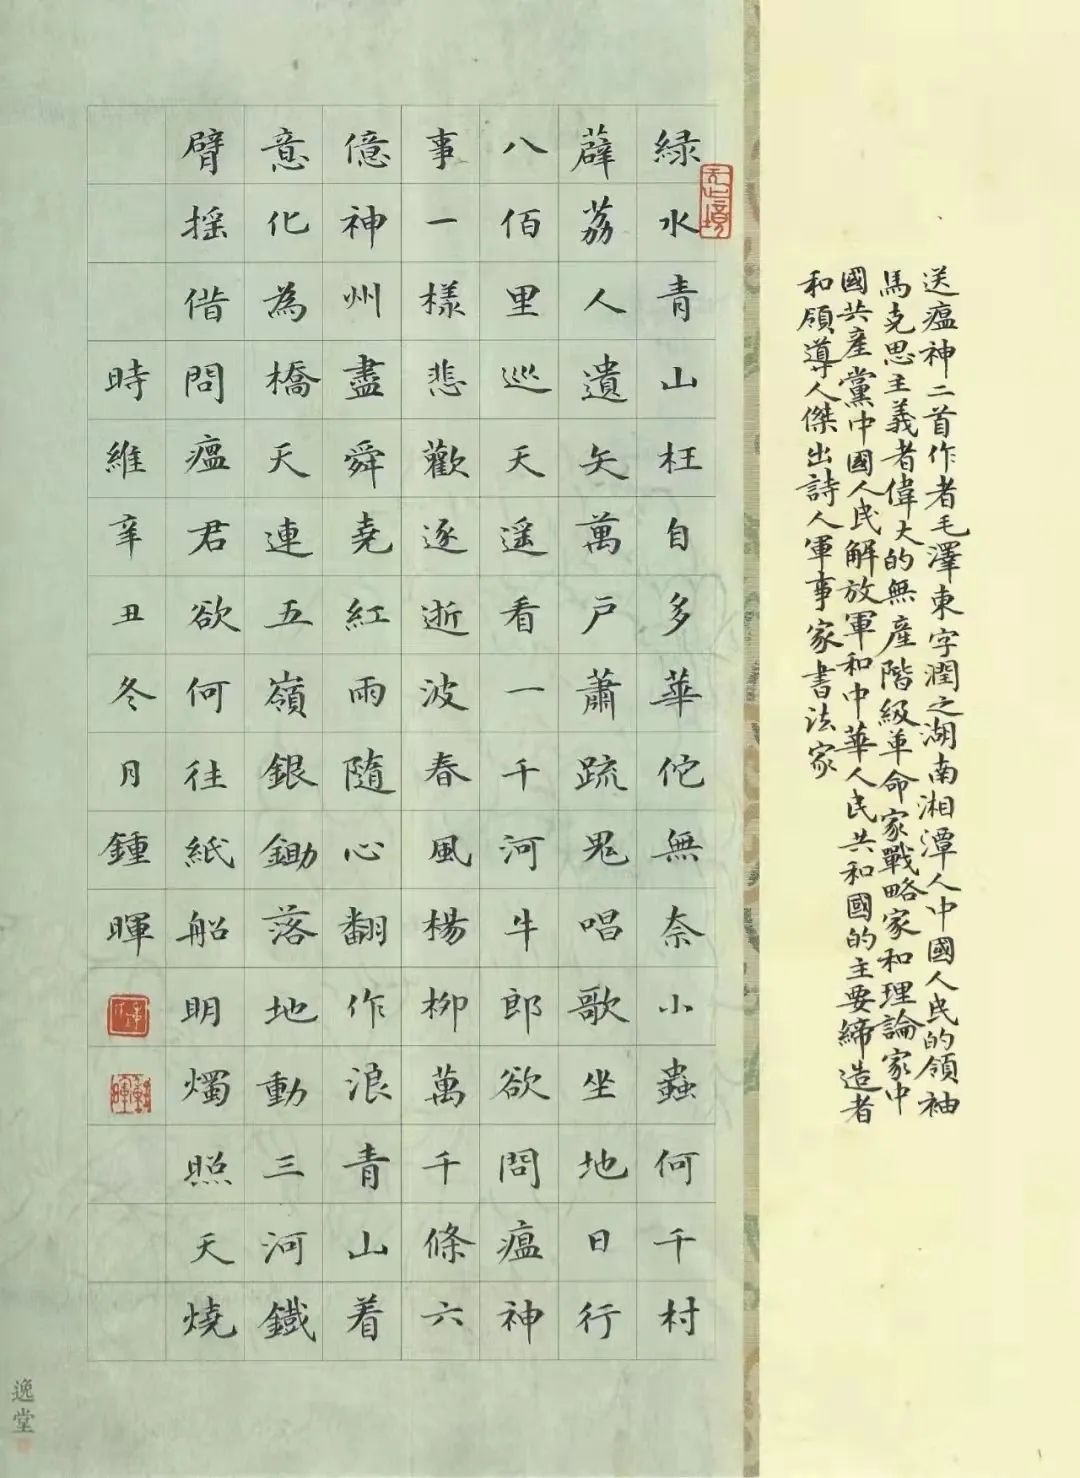 送瘟神二首作者毛澤東字潤之湖南湘潭人中國人民的領袖
馬克思主義者偉大的無產階級革命家戰略家和理論家中
國共產黨中國人民解放軍和中華人民共和國的主要締造者
和領導人傑出詩人軍事家書法家
緑水青山枉自多華佗無奈小蟲何千村
薜荔人遺矢萬户蕭疏鬼唱歌坐地日行
八佰里巡天遥看一千河牛郎欲問瘟神
事一樣悲歡逐逝波春風楊柳萬千條六
億神州盡舜堯紅雨隨心翻作浪青山着
意化為橋天連五嶺銀鋤落地動三河鐵
臂摇借問瘟君欲何往紙船明燭照天燒
時維辛丑冬月鍾暉
逸堂